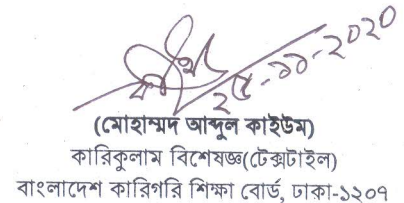 ২৫-১১-২০২০
(মোহাম্মদ আব্দুল কাইউম)
কারিকুলাম বিশেষজ্ঞ(টেক্সটাইল)
বাংলাদেশ কারিগরি শিক্ষা বোর্ড, ঢাকা-১২০৭